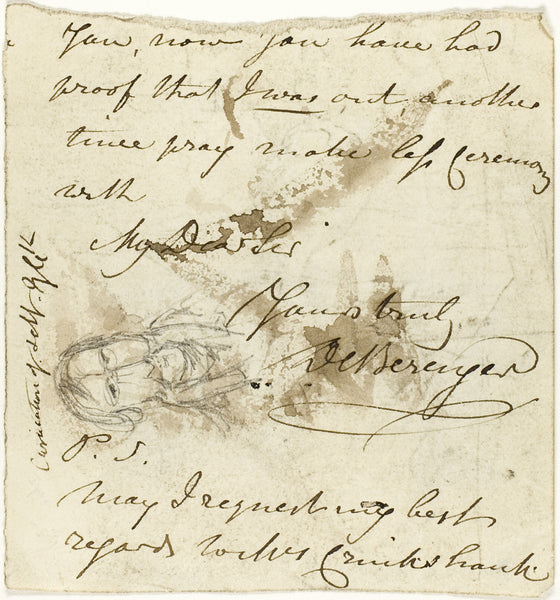 You, now you have had
proof that I was out, another
time pray make less Ceremony
with
My Dear Sir
Yours truly
De Berenger
P. S.
May I request my best
regards to Mrs Cruikshank
Caricature of self. G Ck